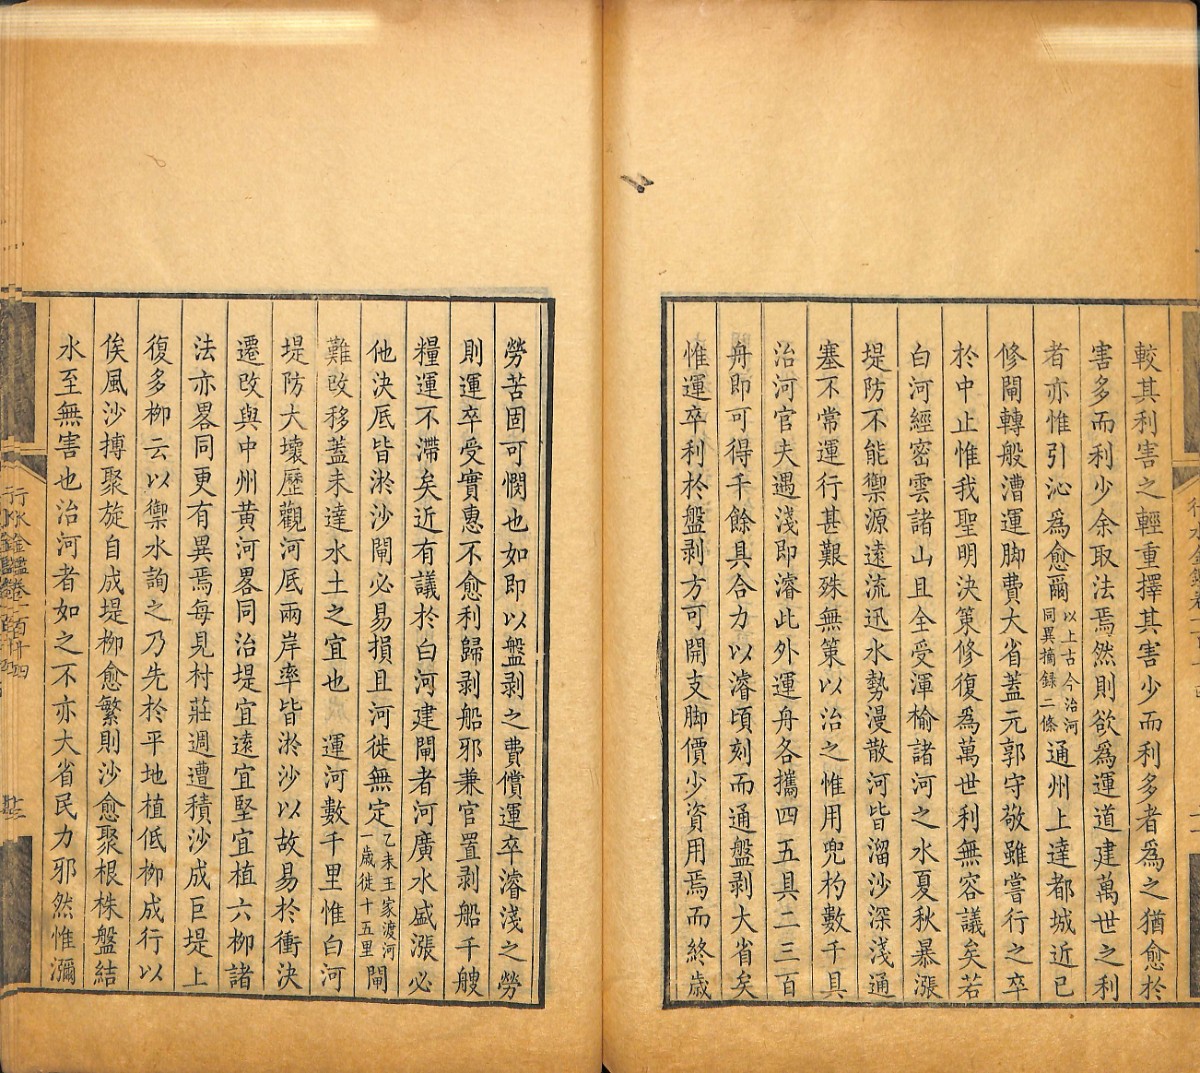 較其利害之輕重擇其害少而利多者爲之猶愈於
害多而利少余取法焉然則欲爲運道建萬世之利
者亦惟引沁爲愈爾以上古今治河同異摘録二條通州上達都城近已
修閘轉般漕運脚費大省蓋元郭守敬雖嘗行之卒
於中止惟我聖明決策修復爲萬世利無容議矣若
白河經密雲諸山且全受渾榆諸河之水夏秋暴漲
堤防不能禦源遠流迅水勢漫散河皆溜沙深淺通
塞不常運行甚艱殊無策以治之惟用兜杓數千具
治河官夫遇淺即濬此外運舟各攜四五具二三百
舟即可得千餘具合力以濬頃刻而通盤剥大省矣
惟運卒利於盤剥方可開支脚價少資用焉而終歳
勞苦固可憫也如即以盤剥之費償運卒濬淺之勞
則運卒受實惠不愈利歸剥船邪兼官置剥船千艘
糧運不滯矣近有議於白河建閘者河廣水盛漲必
他決底皆淤沙閘必易損且河徙無定乙未王家渡河一歳徙十五里閘
難改移蓋未達水土之宜也　運河數千里惟白河
堤防大壞歷觀河底兩岸率皆淤沙以故易於衝決
遷改與中州黄河畧同治堤宜遠宜堅宜植六柳諸
法亦畧同更有異焉每見村莊週遭積沙成巨堤上
復多柳云以禦水詢之乃先於平地植低柳成行以
俟風沙摶聚旋自成堤柳愈繁則沙愈聚根株盤結
水至無害也治河者如之不亦大省民力邪然惟瀰
行水金鑑卷一百十四